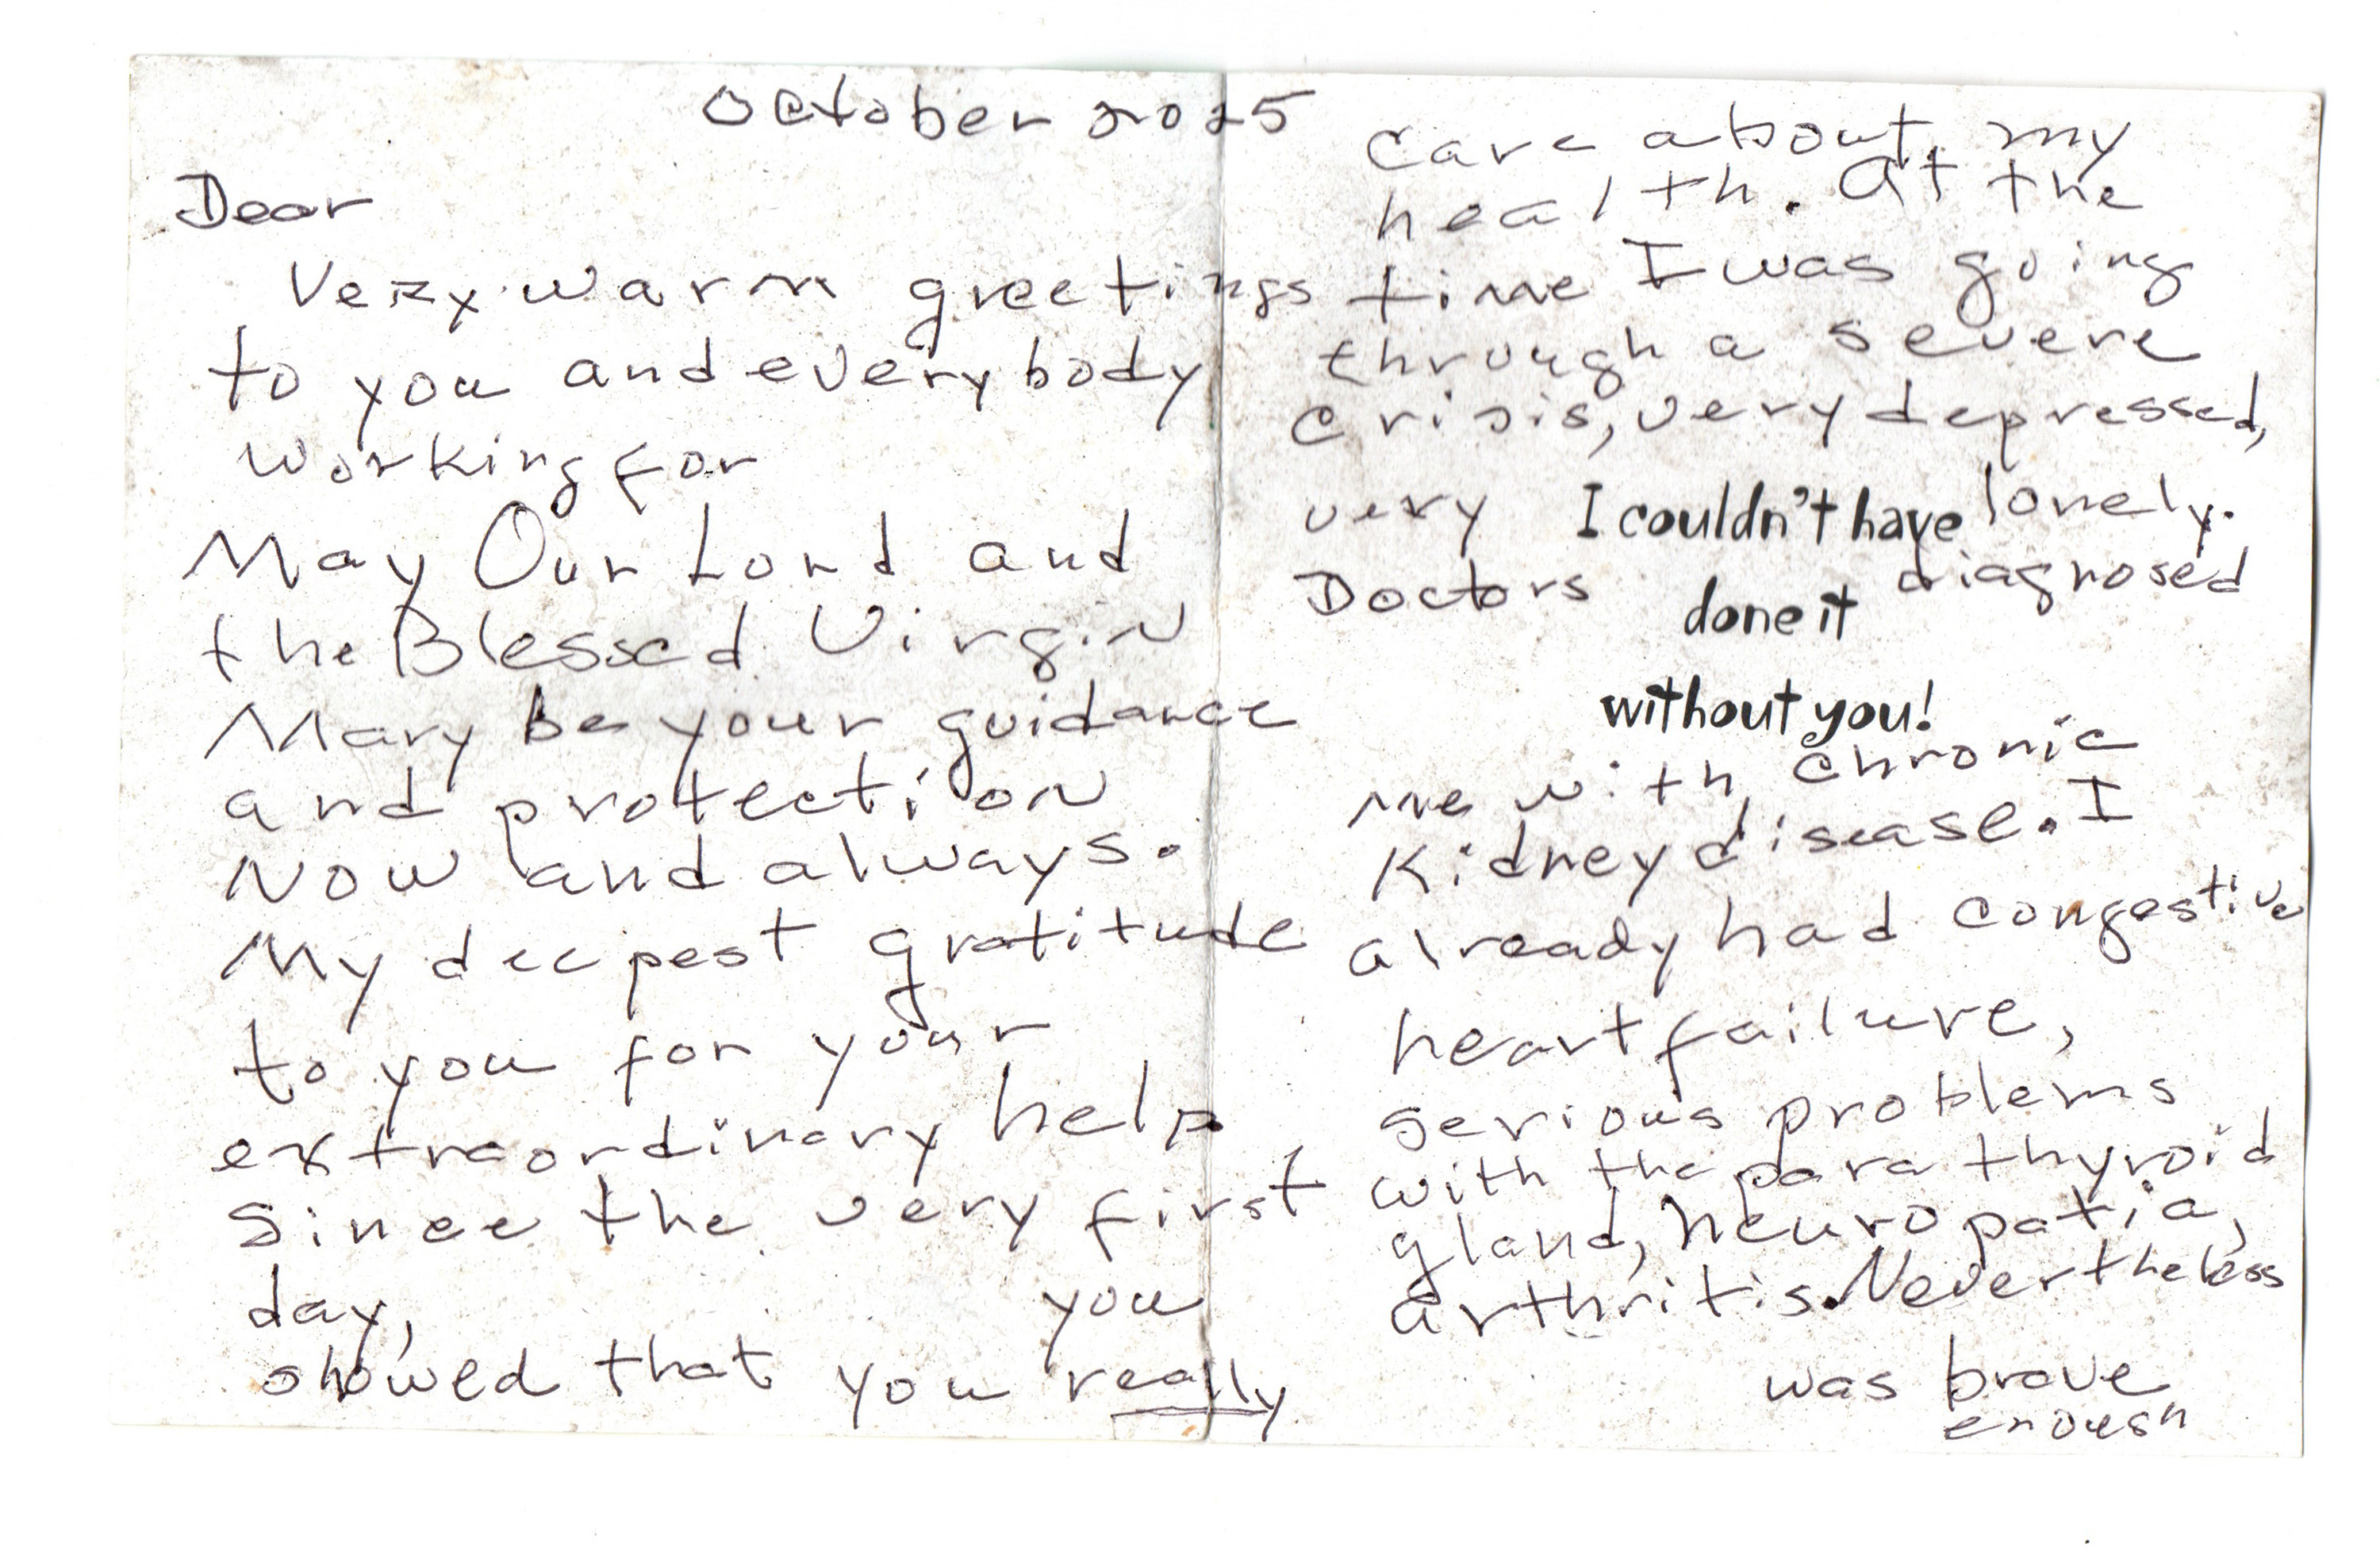 October 2025
Dear
Very warm greetings
to you and everybody
working for
May Our Lord and
the Blessed Virgin
Mary be your guidance
and protection
Now and always.
My deepest gratitude
to you for your
extraordinary help
since the very first
day, you
showed that you really
care about my
health. At the
time I was going
through a severe
crisis, very depressed,
very lonely.
I couldn't have
Doctors diagnosed
done it
without you!
me with chronic
Kidney disease. I
already had congestive
heart failure,
serious problems
with the para thyroid
gland, neuropatia,
arthritis. Nevertheless
was brave
enough